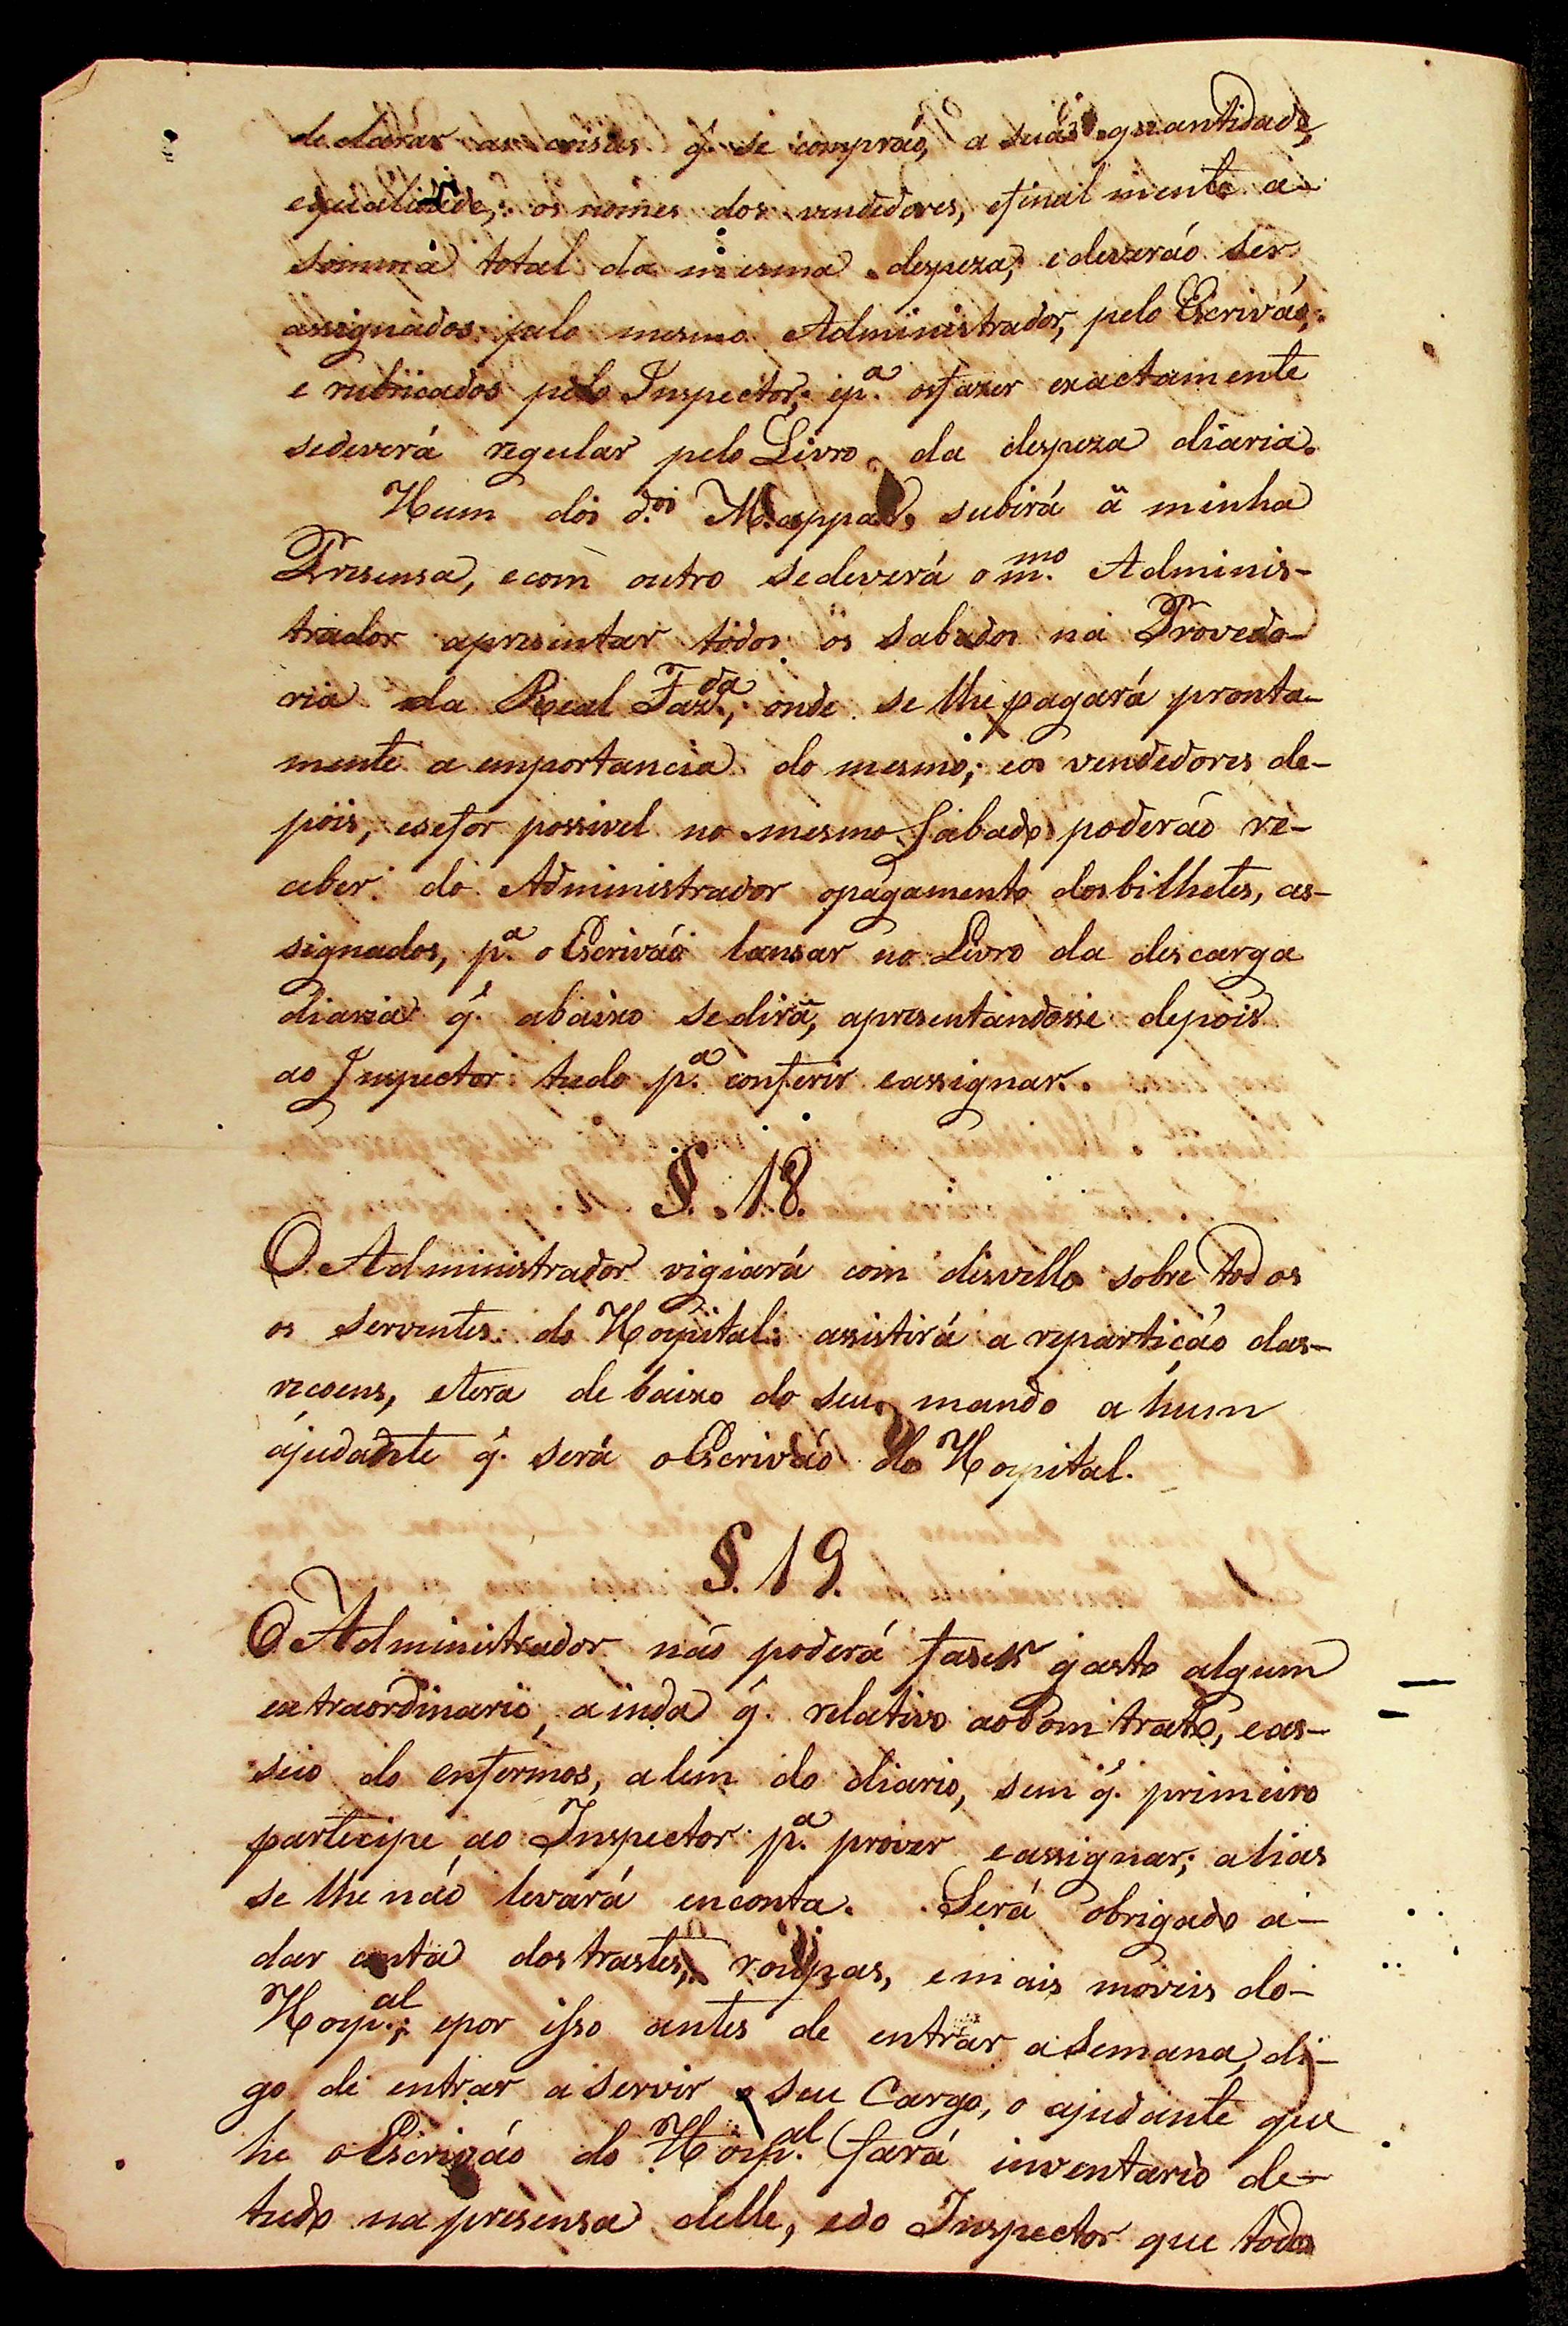 declarar as coisas q. se comprão, a sua quantidade,
equalidade, os nomes dos vendedores, efinal mente a
somma total da mesma despeza, edeverão ser
assignados pelo mesmo Administrador, pelo Escrivão,
e rubricados pelo Inspector; ep.ª osfazer exactamente
sedeverá regular pelo Livro da despeza diaria.
Hum dos d.os Mappas subirá á minha
Presensa, ecom outro sedeverá o m.mo Adminis-
trador apresentar todos os sabados na Provedo-
ria da Real Faz.da, onde se lhe pagará pronta-
mente a emportancia do mesmo; eos vendedores de-
pois, esefor possivel no mesmo Sabado poderáo re-
ceber do Administrador opagamento dosbilhetes, as-
signados, p.ª o Escriváo lansar no Livro da descarga
diaria q. abaixo sedirá, apresentandosse depois
ao Inspector tudo p.ª conferir eassignar.
§. 18.
O Administrador vigiará com disvello sobre todos
os serventes do Hospital: assistirá a repartição das-
reçoens, etera de baixo do seu mando a hum
ajudante q. será oEscriváo do Hospital.
§. 19.
O Administrador náo poderá faser gasto algum
extraordinario, ainda q. relativo aobom trato, eas-
seio do enfermos, alem do diario, sem q. primeiro
partecipe ao Inspector p.ª prover eassignar; alias
se lhe náo levará enconta. Será obrigado a-
dar conta dostrastes, roupas, emais moveis do-
Hosp.al; epor isso antes de entrar a semana, di-
go de entrar a servir o seu Cargo, o ajudante que
he oEscriváo do Hosp.al fará inventario de-
tudo na presensa delle, edo Inspector que todos